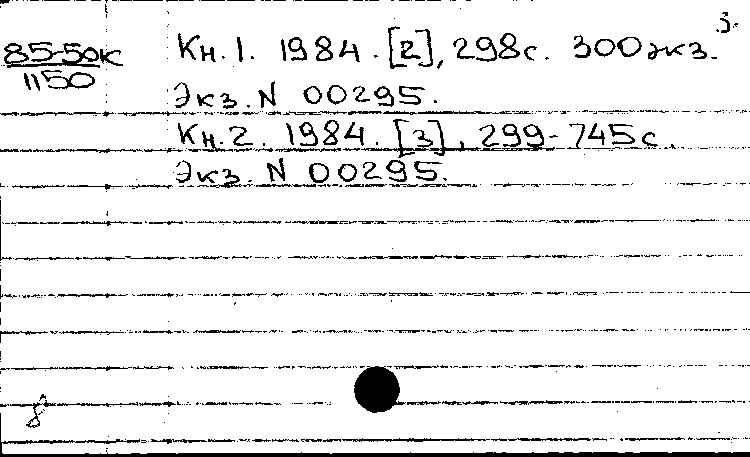 3.
85-50к
1150
Кн.1. 1984. [2], 298с. 300экз.
Экз. N 00295.
Кн.2. 1984. [3], 299-745с.
Экз. N 00295.
8